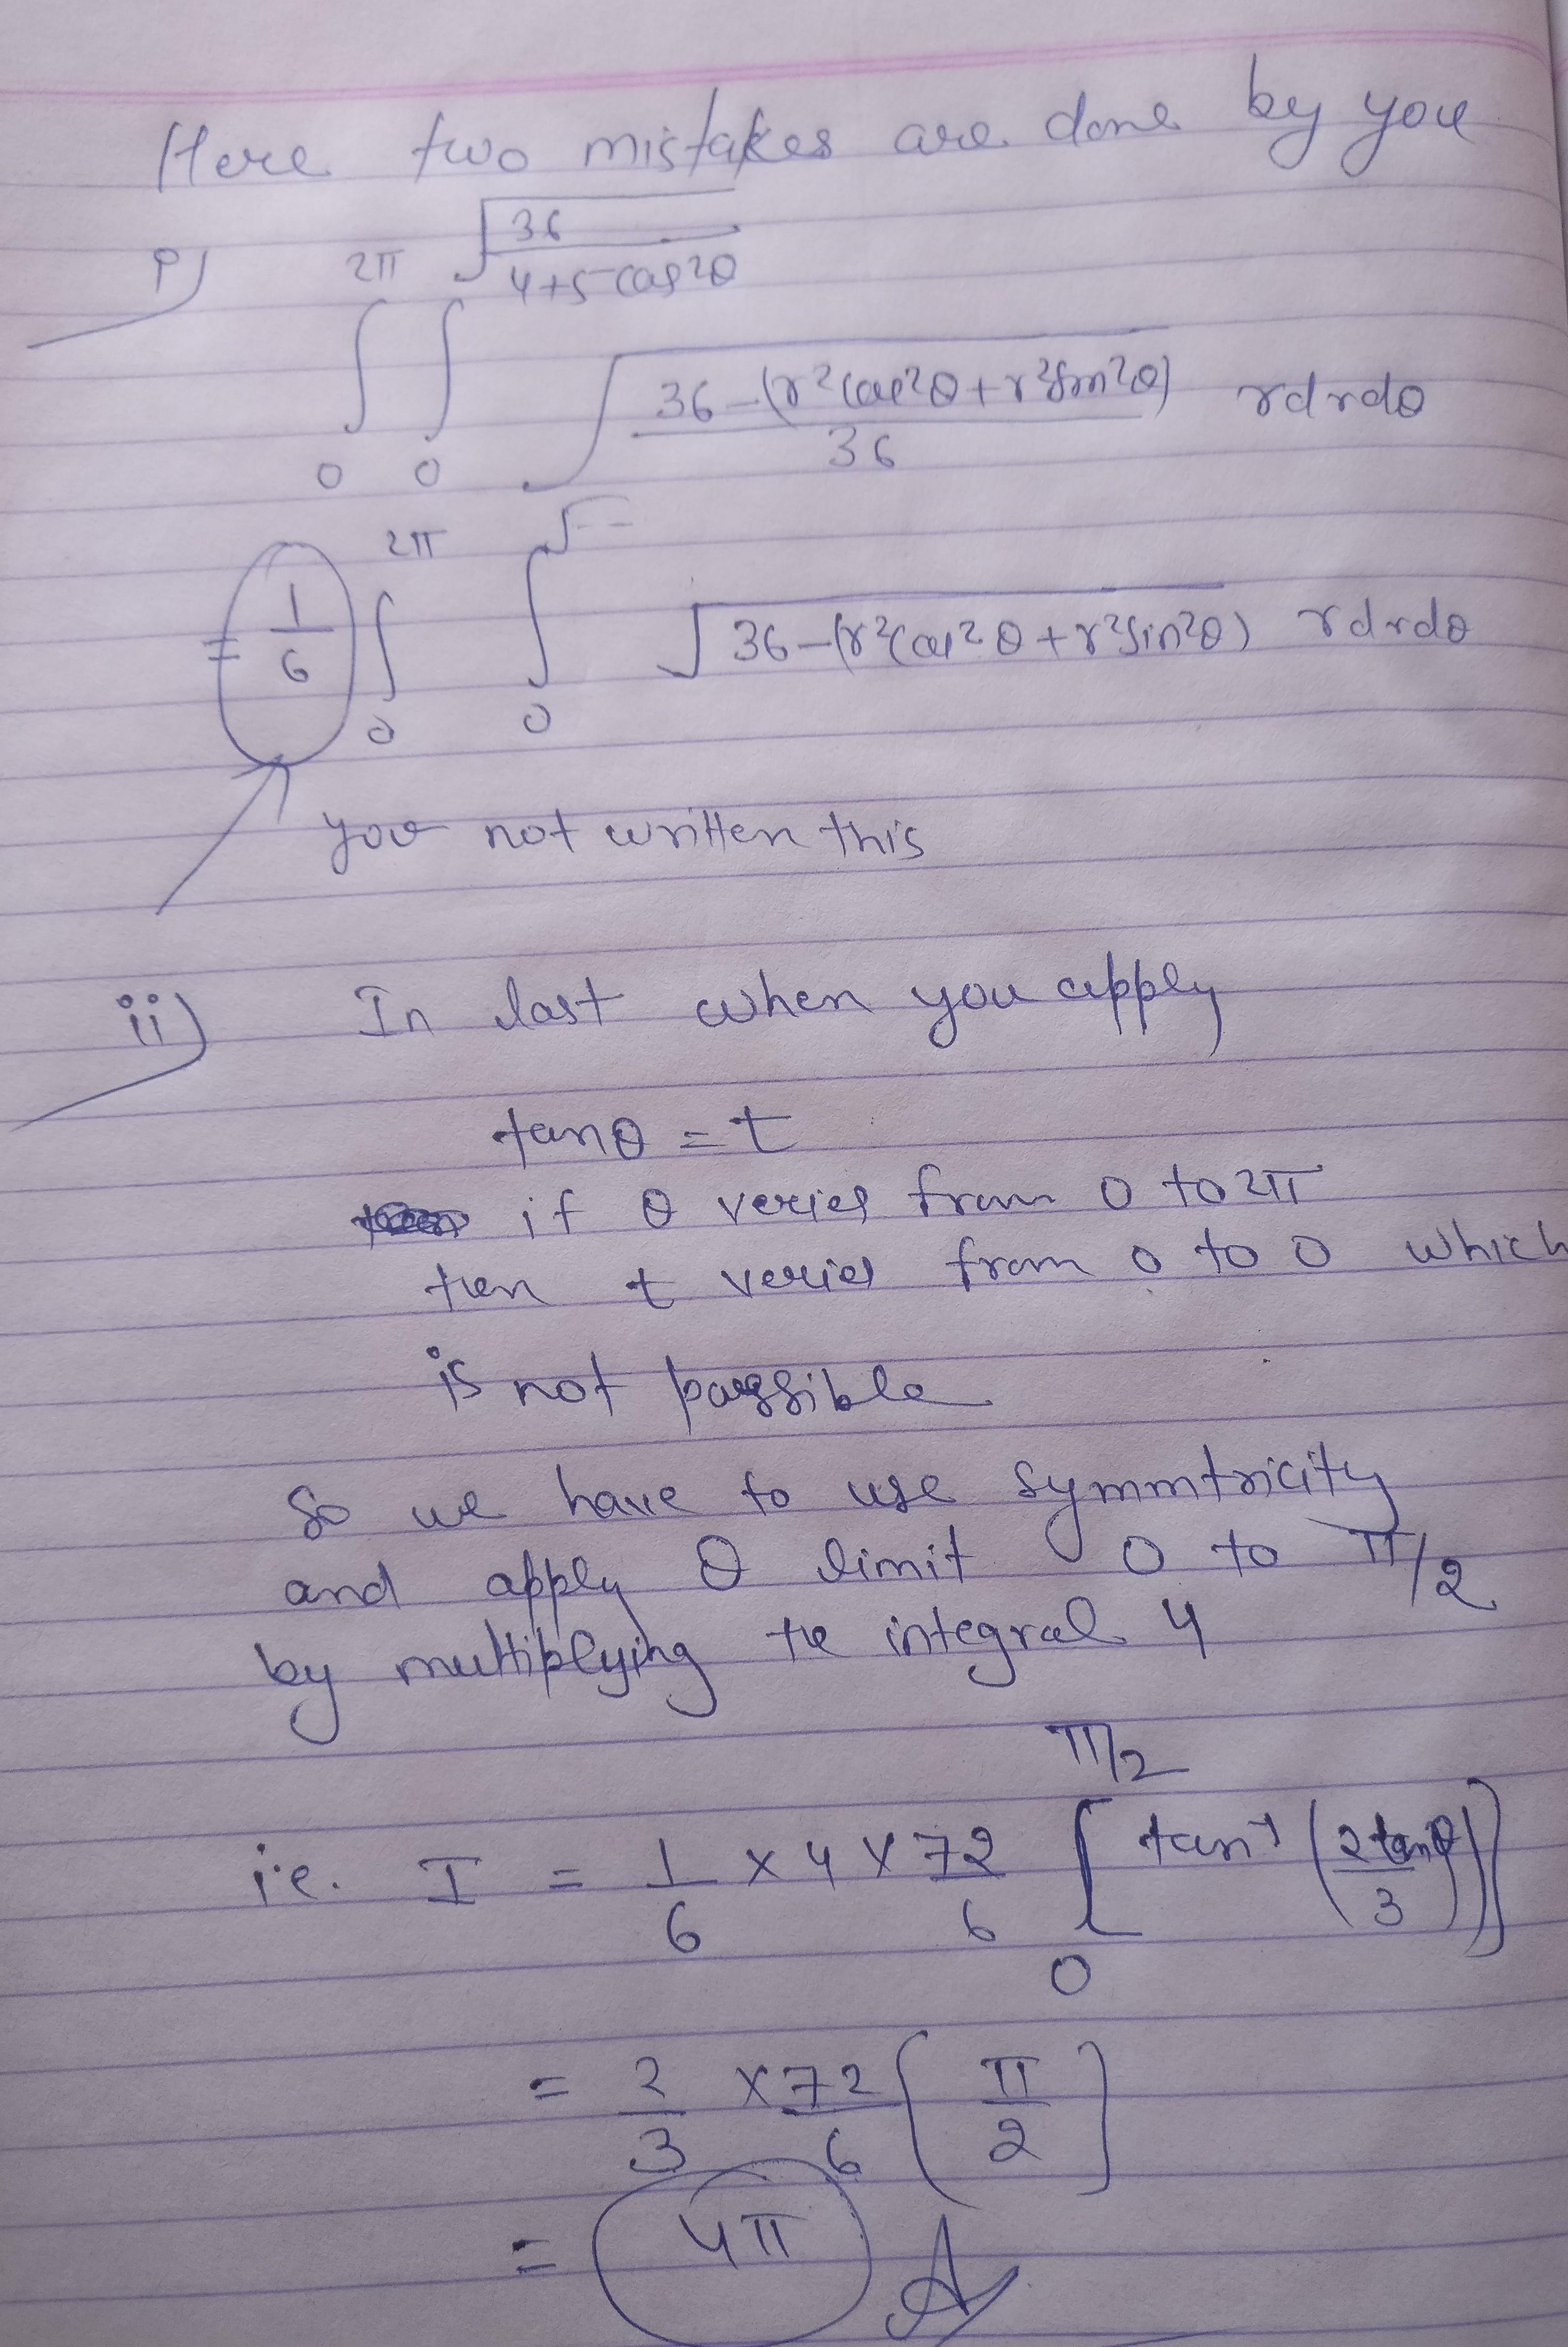 Here two mistakes are done by you
i) ∫_0^{2π} ∫_0^{√(36/(4+5cos²θ))} √((36-(r²cos²θ+r²sin²θ))/36) rdrdθ
= 1/6 ∫_0^{2π} ∫_0^{√--} √(36-(r²cos²θ+r²sin²θ)) rdrdθ
you not written this
ii) In last when you apply
tanθ = t
if θ veries from 0 to 2π
then t veries from 0 to 0 which
is not possible
So we have to use symmtricity
and apply θ limit 0 to π/2
by multiplying the integral 4
i.e. I = 1/6 × 4 × 72/6 [tan⁻¹(2tanθ/3)]_0^{π/2}
= 2/3 × 72/6 [π/2]
= 4π A